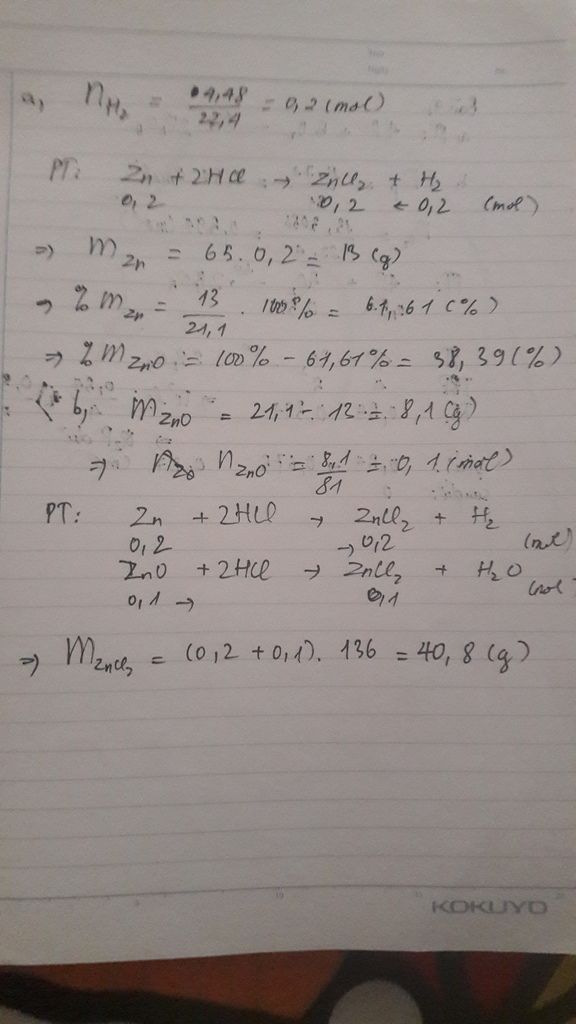 a, nH₂ = 4,48/22,4 = 0,2 (mol)
PT: Zn + 2HCl → ZnCl₂ + H₂
0,2 0,2 ← 0,2 (mol)
⇒ mZn = 65.0,2 = 13 (g)
→ % mZn = 13/21,1 . 100% = 61,61 (%)
⇒ % mZnO = 100% - 61,61% = 38,39 (%)
b, mZnO = 21,1 - 13 = 8,1 (g)
⇒ nZnO = 8,1/81 = 0,1 (mol)
PT: Zn + 2HCl → ZnCl₂ + H₂
0,2 → 0,2 (mol)
ZnO + 2HCl → ZnCl₂ + H₂O
0,1 → 0,1 (mol)
⇒ mZnCl₂ = (0,2 + 0,1). 136 = 40,8 (g)
KOKUYO